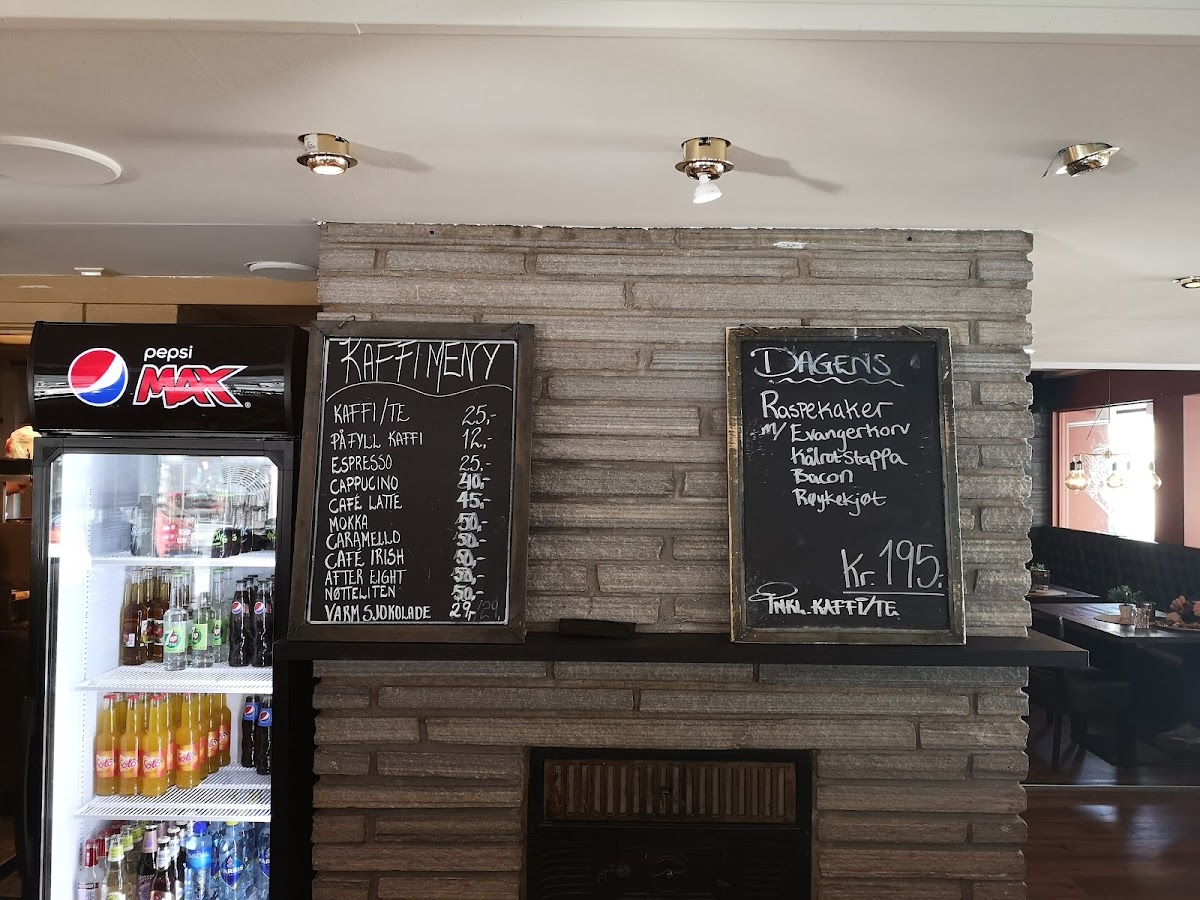 pepsi
MAX
KAFFI MENY
KAFFI/TE 25,-
PÅFYLL KAFFI 12,-
ESPRESSO 25,-
CAPPUCINO 40,-
CAFÉ LATTE 45,-
MOKKA 50,-
CARAMELLO 50,-
CAFÉ IRISH 50,-
AFTER EIGHT 50,-
NØTTELITEN 50,-
VARM SJOKOLADE 29,-
DAGENS
Raspekaker
m/ Evangerkorv
Kålrotstappa
Bacon
Røykekjøt
Kr. 195.
INKL. KAFFI/TE.
Solo
Solo
Solo
Solo